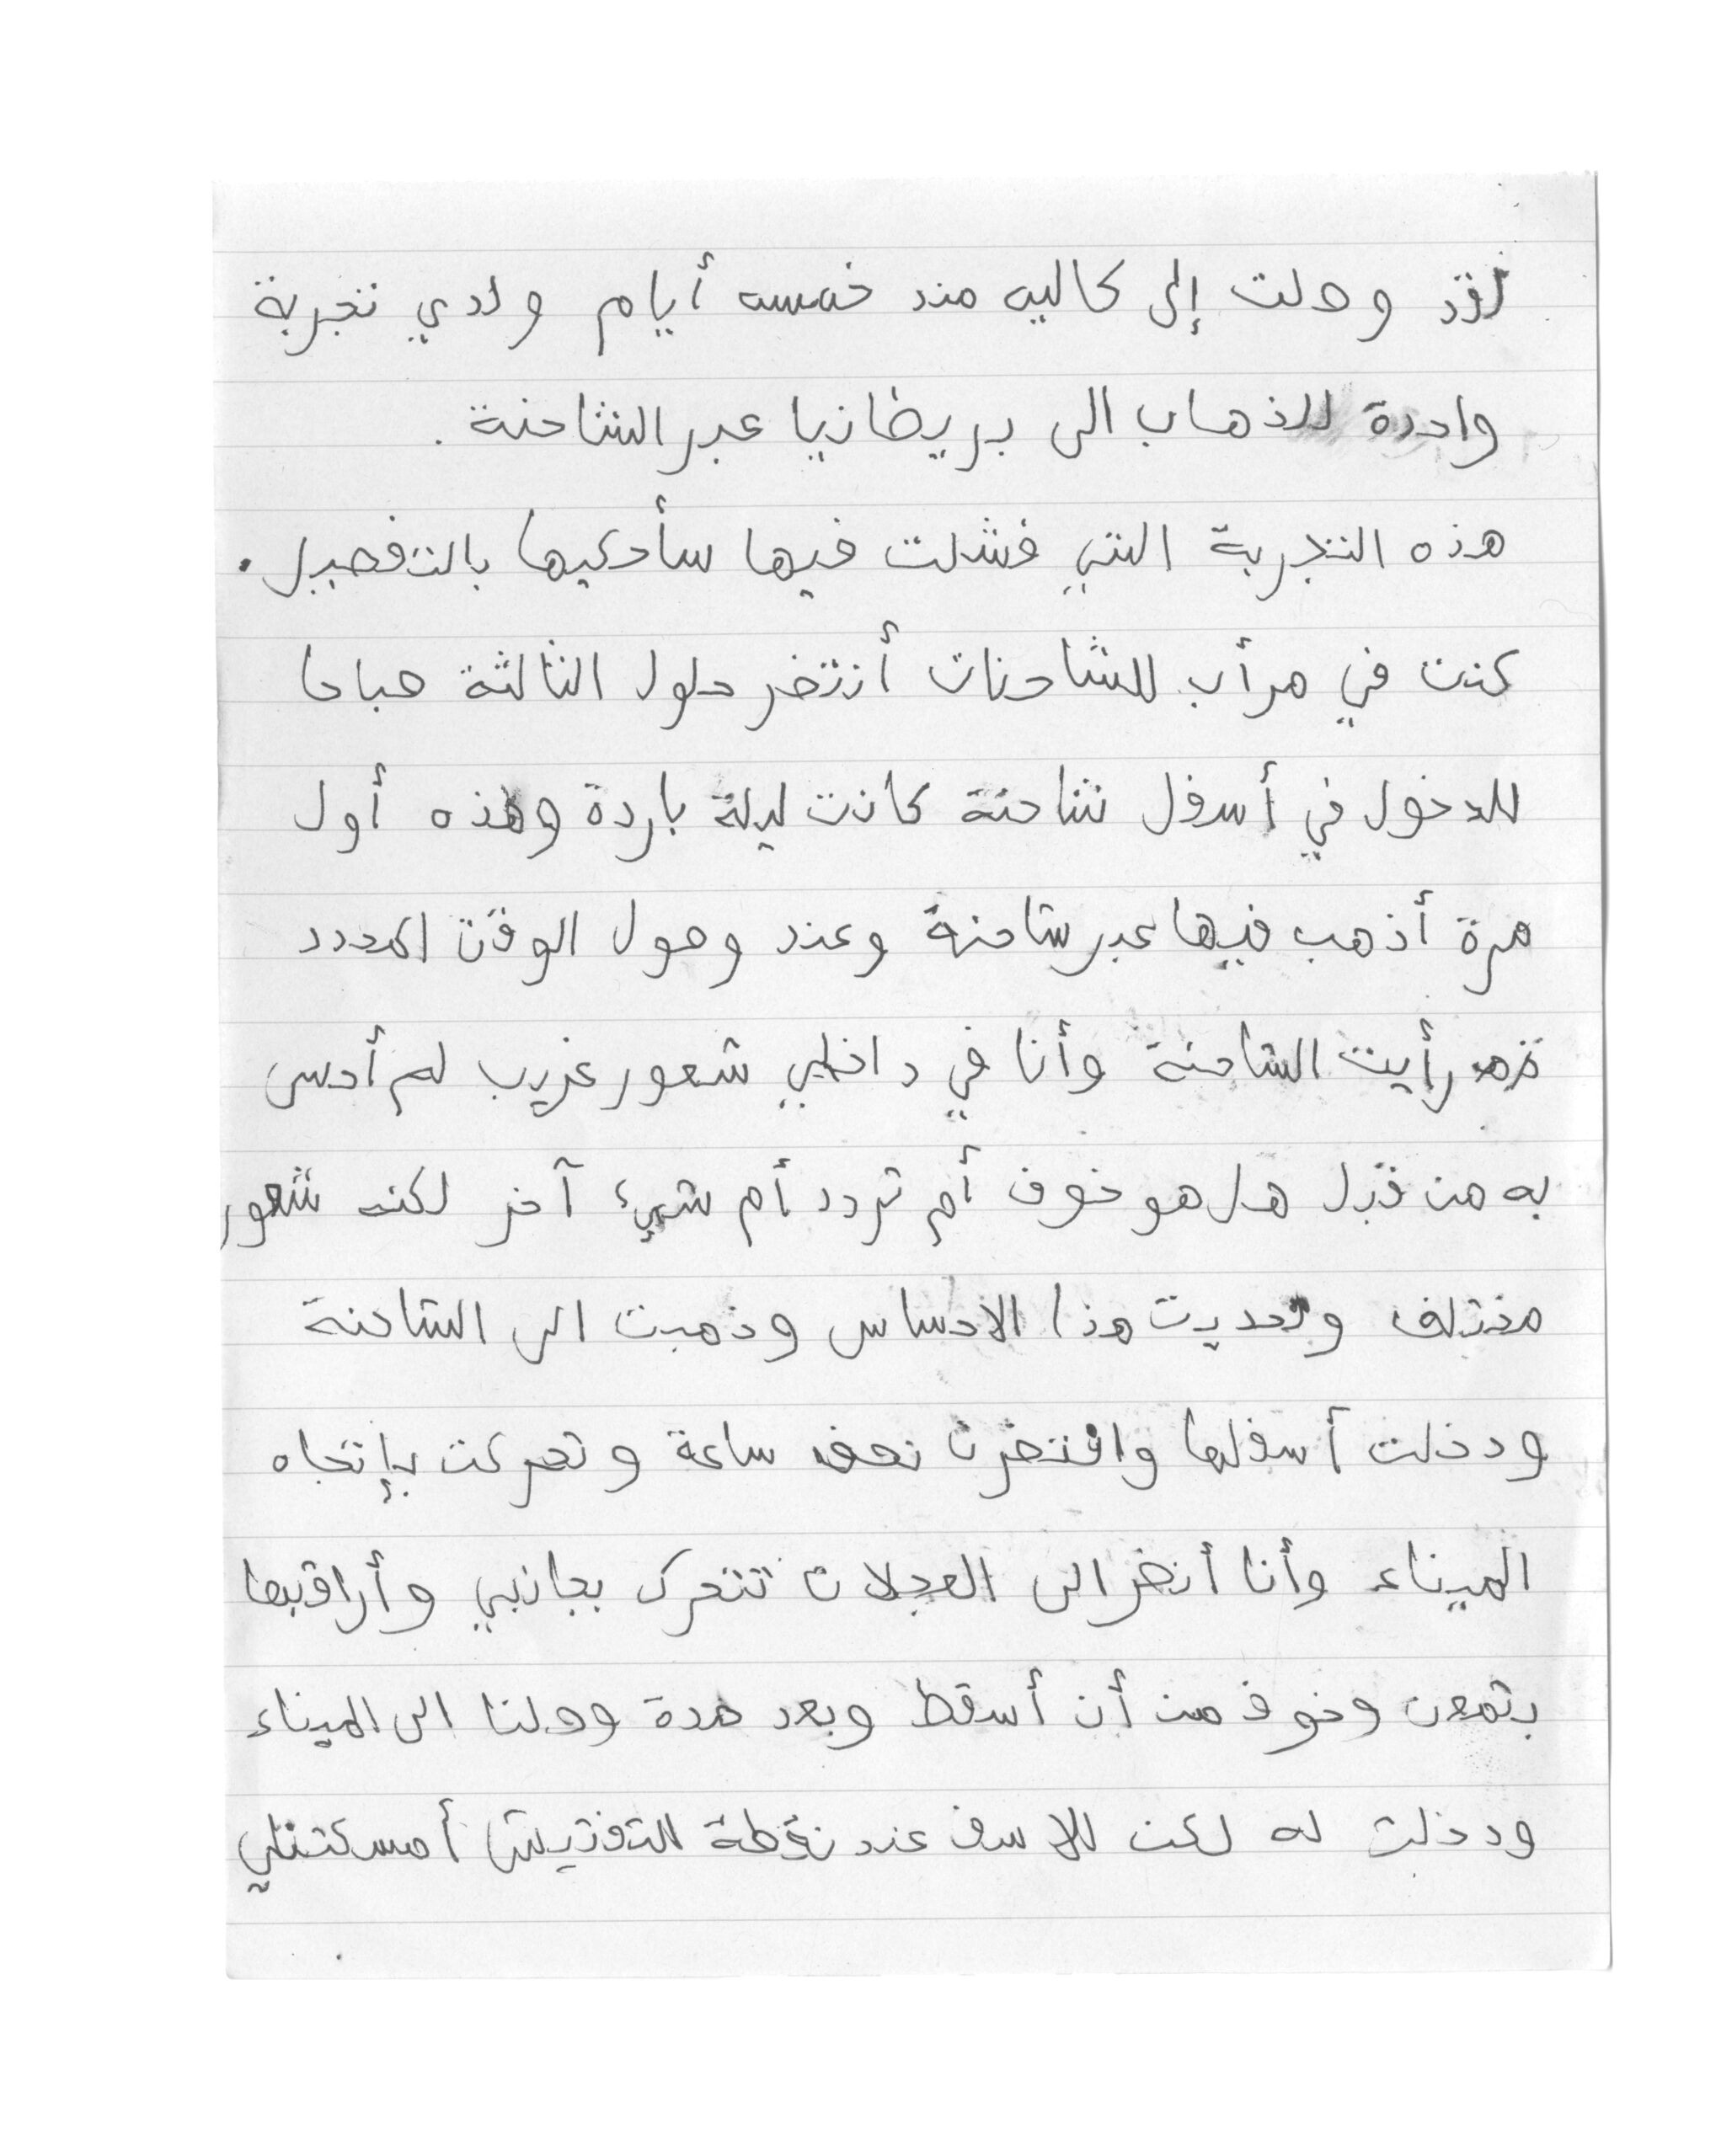 لقد وصلت إلى كاليه منذ خمسه أيام ولدي تجربة
واحدة للذهاب الى بريطانيا عبر الشاحنة.
هذه التجربة التي فشلت فيها سأحكيها بالتفصيل.
كنت في مرأب للشاحنات أنتضر حلول الثالثة صباحا
للدخول في أسفل شاحنة كانت ليلة باردة وهذه أول
مرة أذهب فيها عبر شاحنة وعند وصول الوقت المحدد
رأيت الشاحنة وأنا في داخلي شعور غريب لم أحس
به من قبل هل هو خوف أم تردد أم شيئ آخر لكنه شعور
مختلف وتحديت هذا الاحساس وذهبت الى الشاحنة
ودخلت أسفلها وانتضرت نصف ساعة وتحركت بإتجاه
الميناء وأنا أنضر الى العجلات تتحرك بجانبي وأراقبها
بتمعن وخوف من أن أسقط وبعد مدة وصلنا الى الميناء
ودخلت له لكن للاسف عند نقطة التفتيش أمسكتني